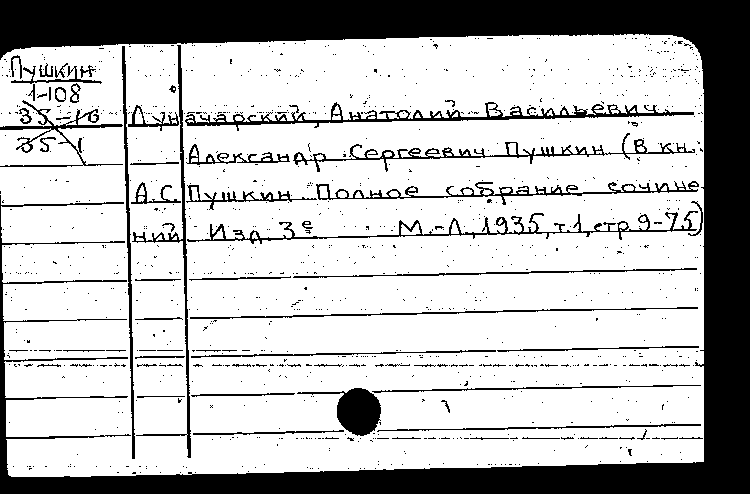 Пушкин
1-108
35-16
35-1
Луначарский, Анатолий Васильевич.
Александр Сергеевич Пушкин (В кн.:
А.С. Пушкин Полное собрание сочине
ний. Изд. 3е М.-Л., 1935, т.1, стр 9-75)